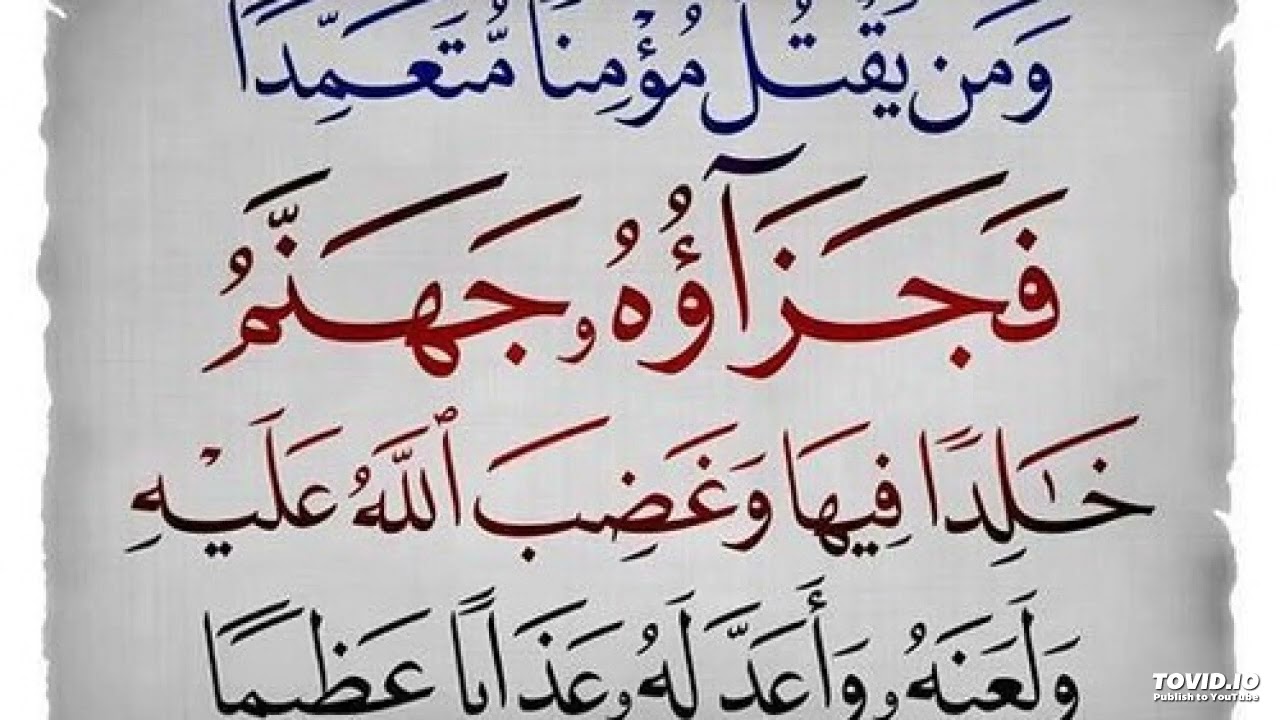 وَمَن يَقْتُلْ مُؤْمِنًا مُّتَعَمِّدًا
فَجَزَآؤُهُۥ جَهَنَّمُ
خَـٰلِدًا فِيهَا وَغَضِبَ ٱللَّهُ عَلَيْهِ
وَلَعَنَهُۥ وَأَعَدَّ لَهُۥ عَذَابًا عَظِيمًا
TOVID.IO
Publish to YouTube